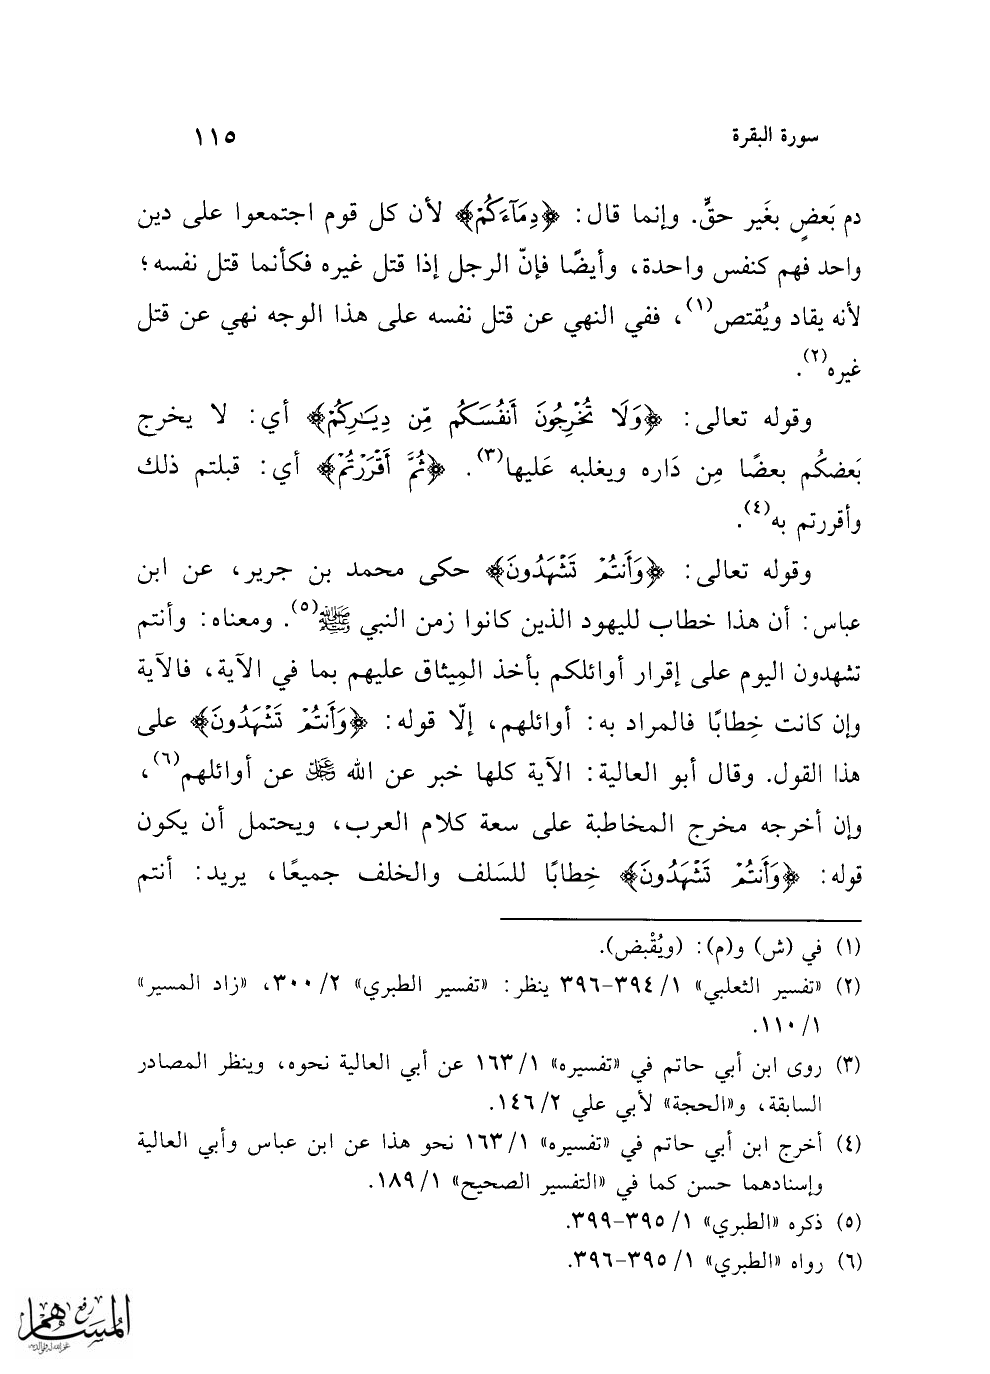 سورة البقرة ١١٥
دم بَعضٍ بغَير حقٍّ. وإنما قال: ﴿دِمَآءَكُمۡ﴾ لأن كل قوم اجتمعوا على دين
واحد فهم كنفس واحدة، وأيضًا فإنّ الرجل إذا قتل غيره فكأنما قتل نفسه؛
لأنه يقاد ويُقتص(١)، ففي النهي عن قتل نفسه على هذا الوجه نهي عن قتل
غيره(٢).
وقوله تعالى: ﴿وَلَا تُخۡرِجُونَ أَنفُسَكُم مِّن دِيَـٰرِكُمۡ﴾ أي: لا يخرج
بَعضكُم بعضًا مِن دَاره ويغلبه عَليها(٣). ﴿ثُمَّ أَقۡرَرۡتُمۡ﴾ أي: قبلتم ذلك
وأقررتم به(٤).
وقوله تعالى: ﴿وَأَنتُمۡ تَشۡهَدُونَ﴾ حكى محمد بن جرير، عن ابن
عباس: أن هذا خطاب لليهود الذين كانوا زمن النبي ﷺ(٥). ومعناه: وأنتم
تشهدون اليوم على إقرار أوائلكم بأخذ المِيثاق عليهم بما في الآية، فالآية
وإن كانت خِطابًا فالمراد به: أوائلهم، إلّا قوله: ﴿وَأَنتُمۡ تَشۡهَدُونَ﴾ على
هذا القول. وقال أبو العالية: الآية كلها خبر عن الله ﷿ عن أوائلهم(٦)،
وإن أخرجه مخرج المخاطبة على سعة كلام العرب، ويحتمل أن يكون
قوله: ﴿وَأَنتُمۡ تَشۡهَدُونَ﴾ خِطابًا للسَلف والخلف جميعًا، يريد: أنتم
(١) في (ش) و(م): (ويُقْبض).
(٢) «تفسير الثعلبي» ١/ ٣٩٤-٣٩٦ ينظر: «تفسير الطبري» ٢/ ٣٠٠، «زاد المسير»
١/ ١١٠.
(٣) روى ابن أبي حاتم في «تفسيره» ١/ ١٦٣ عن أبي العالية نحوه، وينظر المصادر
السابقة، و«الحجة» لأبي علي ٢/ ١٤٦.
(٤) أخرج ابن أبي حاتم في «تفسيره» ١/ ١٦٣ نحو هذا عن ابن عباس وأبي العالية
وإسنادهما حسن كما في «التفسير الصحيح» ١/ ١٨٩.
(٥) ذكره «الطبري» ١/ ٣٩٥-٣٩٩.
(٦) رواه «الطبري» ١/ ٣٩٥-٣٩٦.
رفع
المساهم